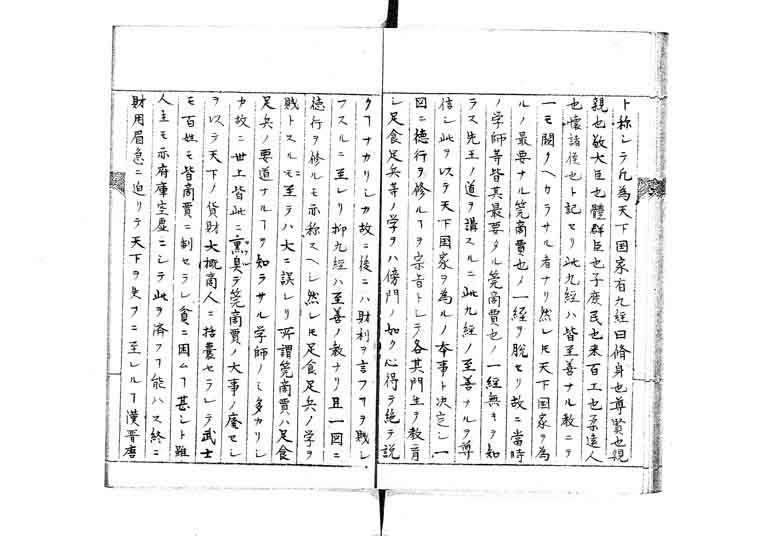 ト称シテ凡為天下国家有九経曰脩身也尊賢也親
親也敬大臣也體群臣也子庶民也来百工也柔遠人
也懐諸侯也ト記セリ此九経ハ皆至善ナル教ニテ
一モ闕クヘカラサル者ナリ然レ𪜈天下国家ヲ為
ルノ最要ナル筦商賈也ノ一経ヲ脱セリ故ニ當時
ノ学師等皆其最要タル筦商賈也ノ一経無キヲ知
ラス先王ノ道ヲ講スルニ此九経ノ至善ナルヲ尊
信シ此ヲ以ラ天下国家ヲ為ルノ本事ト决定シ一
図ニ徳行ヲ修ルヿヲ宗旨トレテ各其門生ヲ教育
シ足食足兵等ノ学ヲハ傍門ノ如ク心得テ絶テ説
クヿナカリシカ故ニ後ニハ財利ヲ言フヿヲ賎シ
フスルニ至レリ抑九経ハ至善ノ教ナリ且一図ニ
徳行ヲ修ルモ亦称スヘシ然レ𪜈足食足兵ノ学ヲ
賎トスルモニ至テハ大ニ誤レリ所謂筦商賈ハ足食
足兵ノ要道ナルヿヲ知ラサル学師ノミ多カリシ
カ故ニ世上皆此ニ薫臭テ筦商賈ノ大事ノ廃セシ
ヲ以テ天下ノ貨財大概商人ニ括嚢セラレテ武士
モ百姓モ皆商賈ニ制セラレ貧ニ困ムヿ甚シト雖
人主モ亦府庫空虚ニシテ此ヲ済フヿ能ハス終ニ
財用眉急ニ迫リテ天下ヲ失フニ至レルヿ漢晋唐